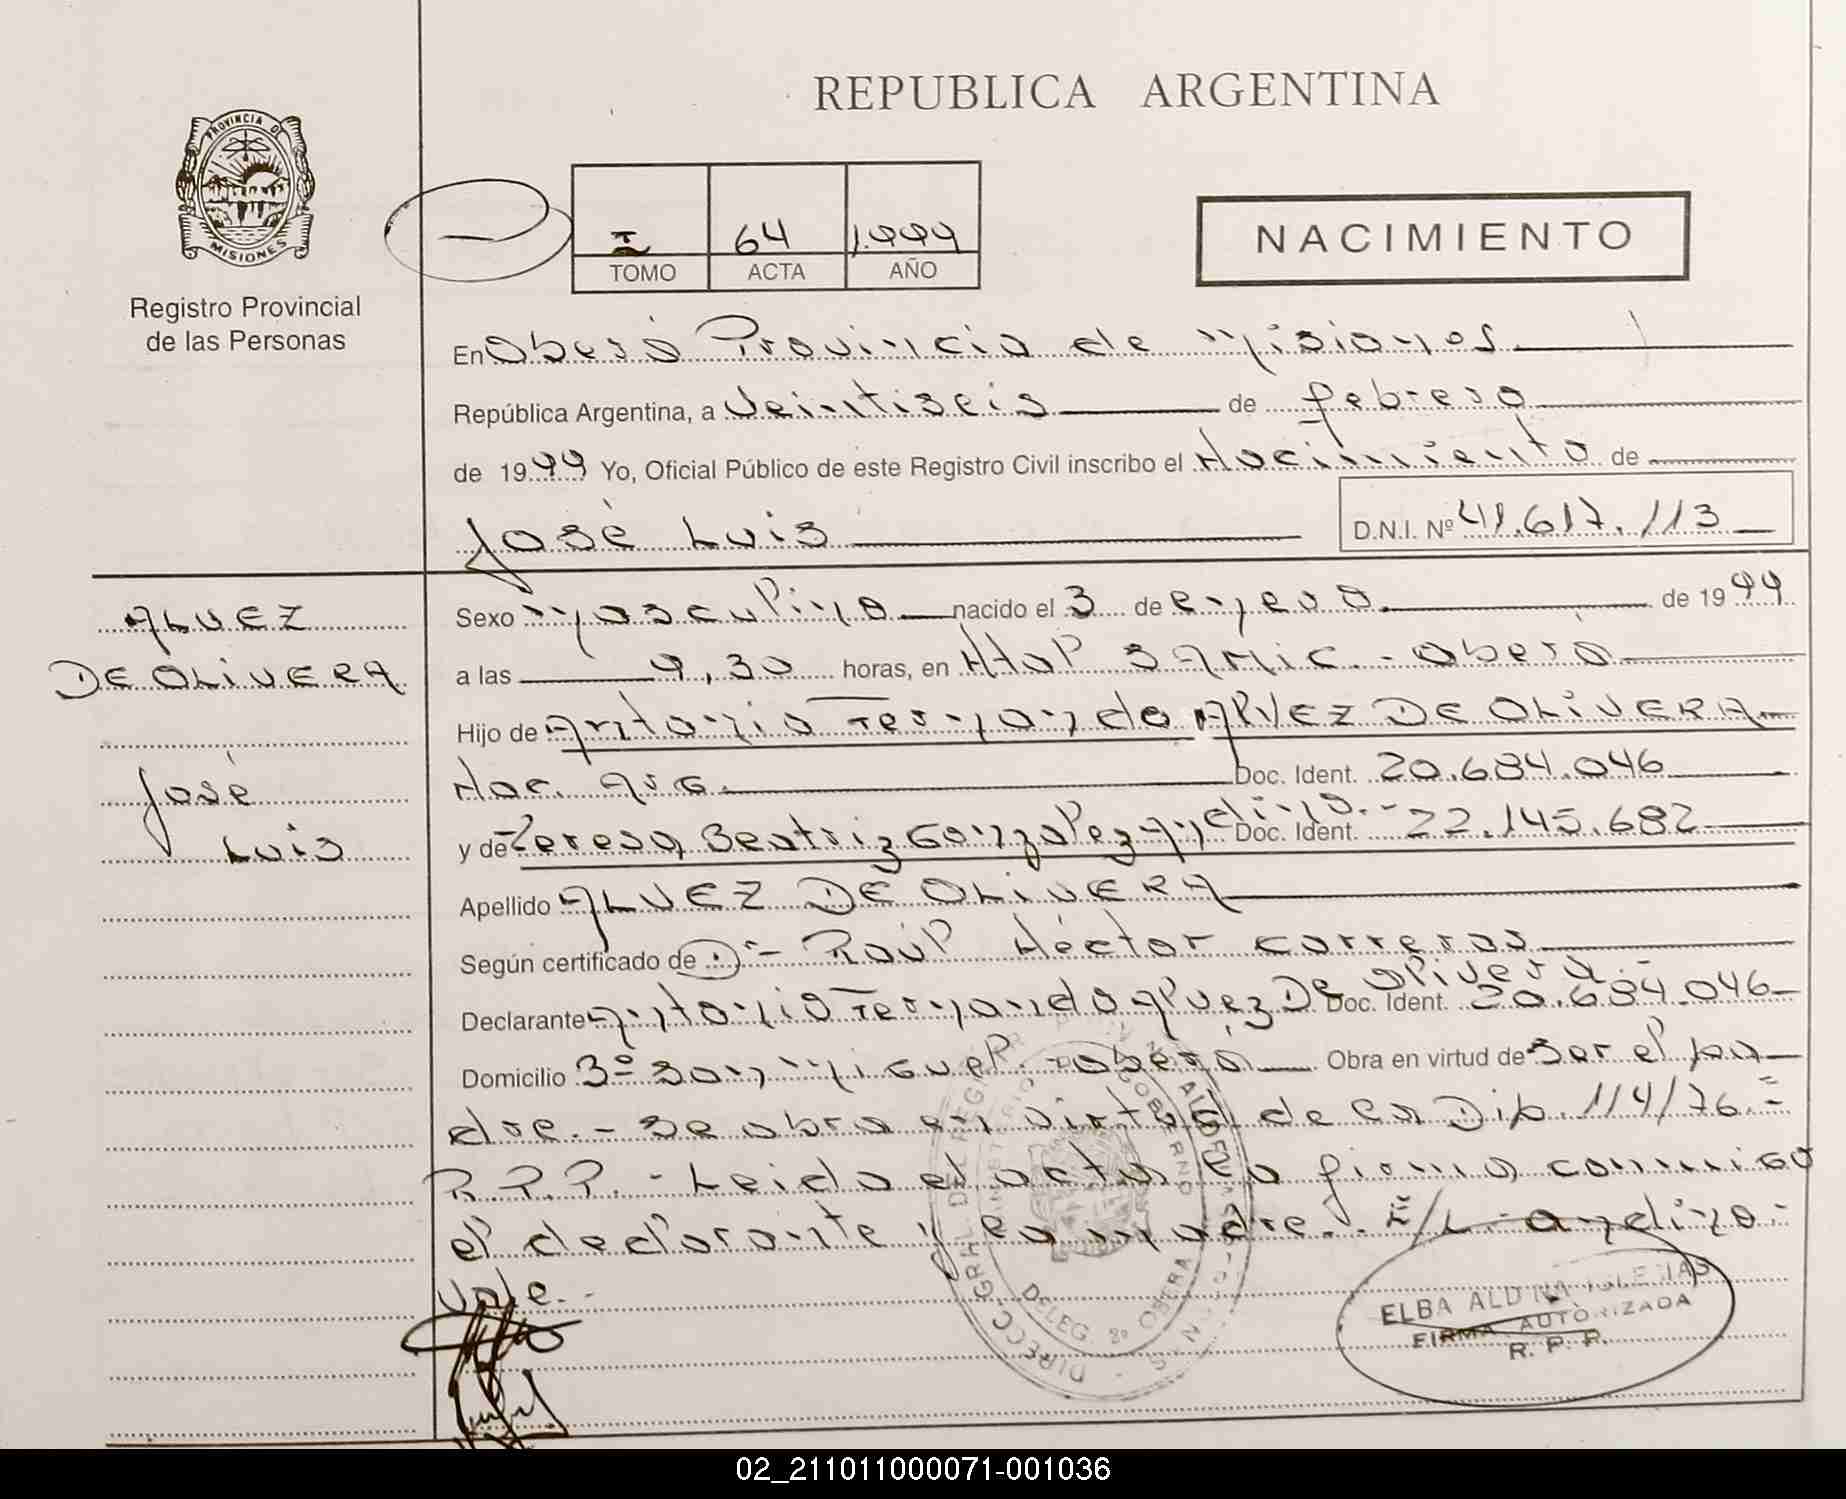 REPUBLICA ARGENTINA
PROVINCIA DE
MISIONES
Registro Provincial
de las Personas
I 64 1.999
TOMO ACTA AÑO
NACIMIENTO
En Oberá Provincia de Misiones
República Argentina, a veintiseis de febrero
de 1999 Yo, Oficial Público de este Registro Civil inscribo el Nacimiento de
José Luis D.N.I. Nº 41.617.113
ALVEZ
DE OLIVERA
José
Luis
Sexo masculino nacido el 3 de enero de 1999
a las 9,30 horas, en Htal SAMIC.- Oberá
Hijo de Antonio Fernando Alvez DE OLIVERA
Nac. Arg. Doc. Ident. 20.684.046
y de Teresa Beatriz Gonzalez Andino.- Doc. Ident. 22.145.682
Apellido ALVEZ DE OLIVERA
Según certificado de D:- Raúl Héctor Carreras
Declarante Antonio Fernando Alvez De Olivera.- Doc. Ident. 20.684.046
Domicilio 3º San Miguel.- Oberá Obra en virtud de ser el pa
dre.- Se obra en virtud de la Dip. 114/76.=
R.P.P.- Leida el acta la firma conmigo
el declarante y la madre.- E/L.- Andino.-
Vale.-
DIRECC. GRAL DEL REGISTRO
DELEG. 2º OBERA
ELBA ALDINA IGLESIAS
FIRMA AUTORIZADA
R. P. P.
02_211011000071-001036